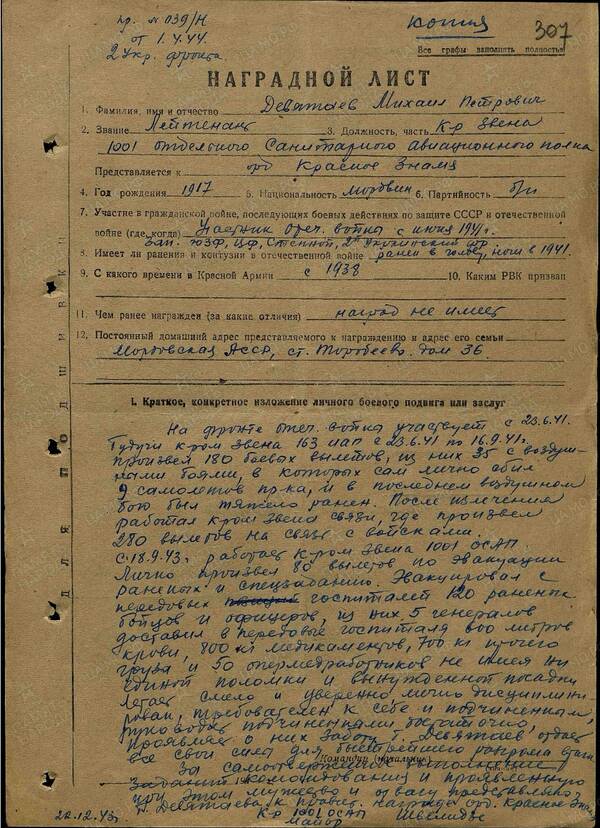 пр. № 039/Н
от 1.4.44.
2 Укр. фронта
копия
307
Все графы заполнять полностью
НАГРАДНОЙ ЛИСТ
1. Фамилия, имя и отчество Девятаев Михаил Петрович
2. Звание Лейтенант 3. Должность, часть К-р звена
1001 отдельного Санитарного авиационного полка
Представляется к орд Красное Знамя
4. Год рождения 1917 5. Национальность мордвин 6. Партийность б/п
7. Участие в гражданской войне, последующих боевых действиях по защите СССР и отечественной
войне (где, когда) Участник отеч. войны с июня 1941 г.
Зап. ЮЗФ, Степной, 2й Украинский фр
8. Имеет ли ранения и контузии в отечественной войне ранен в голову, ноги в 1941.
9. С какого времени в Красной Армии с 1938 10. Каким РВК призван
11. Чем ранее награжден (за какие отличия) наград не имеет
12. Постоянный домашний адрес представляемого к награждению и адрес его семьи
Мордовская АССР, ст. Торбеево. дом 36
Для подшивки
I. Краткое, конкретное изложение личного боевого подвига или заслуг
На фронте отеч. войны участвует с 23.6.41.
Будучи к-ром звена 163 ИАП с 23.6.41 по 16.9.41г.
произвел 180 боевых вылетов, из них 35 с воздуш-
ными боями, в которых сам лично сбил
9 самолетов пр-ка, и в последнем воздушном
бою был тяжело ранен. После излечения
работал к-ром звена связи, где произвел
280 вылетов на связь с войсками.
с 18.9.43г. работает к-ром звена 1001 ОСАП.
Лично произвел 80 вылетов по эвакуации
раненых и спецзаданию. Эвакуировал с
передовых госпиталей 120 раненых
бойцов и офицеров, из них 5 генералов
доставил в передовые госпиталя 600 литров
крови, 800 кг медикаментов, 700 кг прочего
груза и 50 медработников не имея ни
единой поломки и вынужденной посадки
Летает смело и уверенно лично дисциплини-
рован, требователен к себе и подчиненным,
руководит подчиненными достаточно,
проявляет о них заботу. т. Девятаев отдает
все свои силы для быстрейшего разгрома врага
Командир (начальник)
За самоотверженное выполнение
заданий командования и проявленную
при этом мужество и отвагу представляю
т. Девятаева к правит. награде орд. Красное Знамя
К-р 1001 ОСАП
22.12.43г. майор Швелидзе